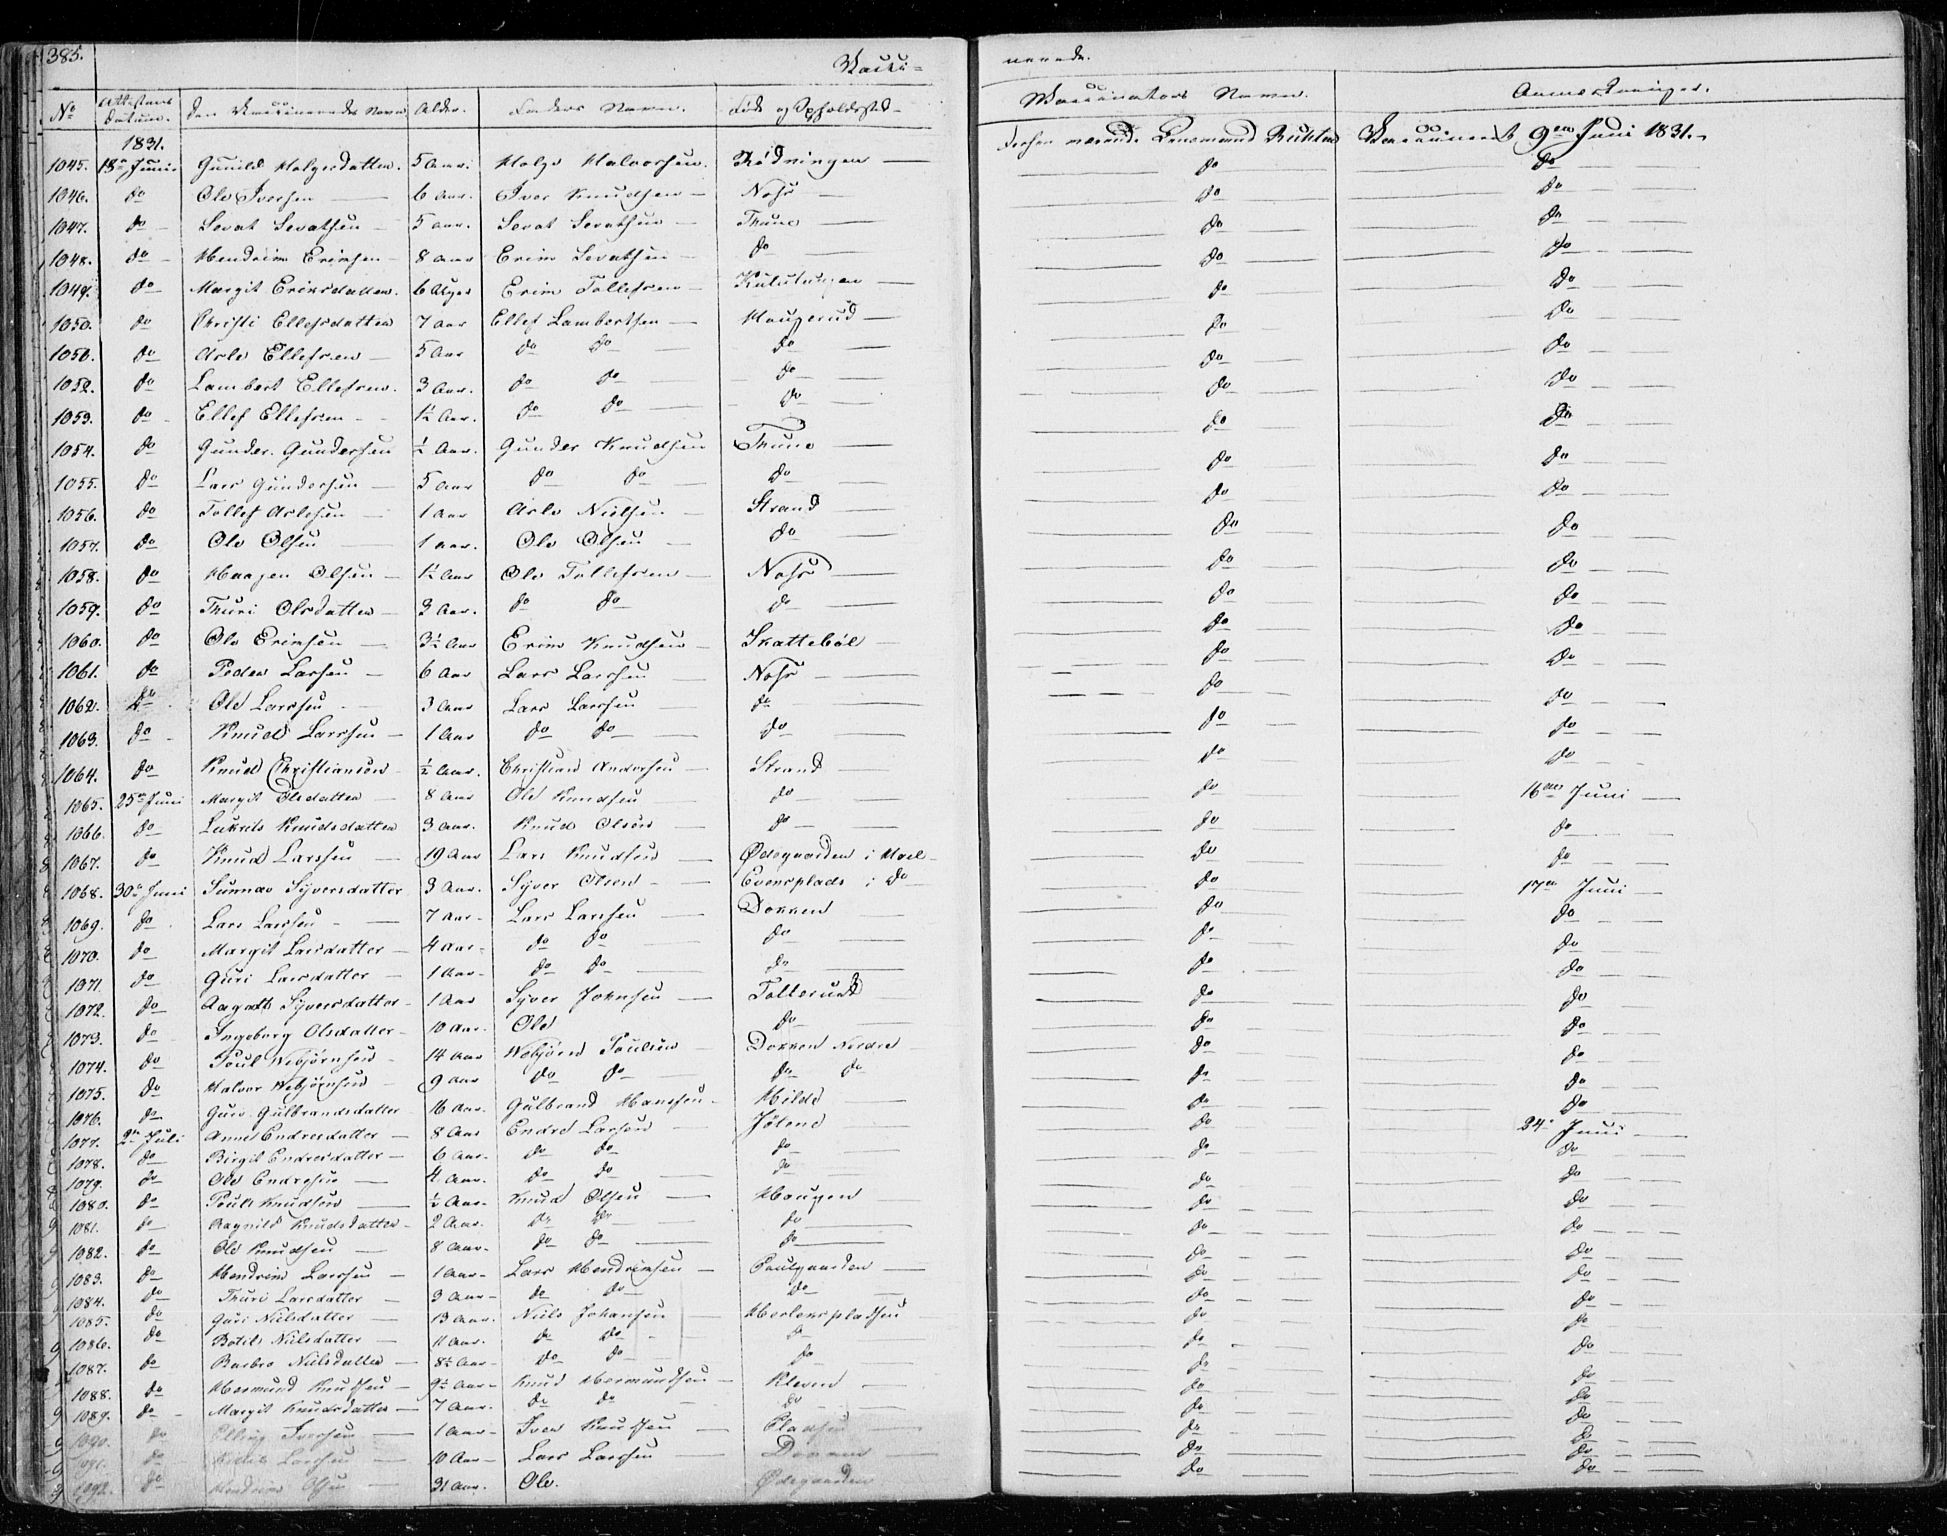 385.
Vacci-
nerede.
No Attestens Datum. Den Vaccineredes Navn Alder. Faders Navn. Føde og Opholdssted Vaccinateurs Navn. Anmærkninger.
1831.
1045. 18de Junii Gunild Holgersdatter. 5 Aar. Holge Halvorsen. Rødningen Lensmand Vaccineret 9en Juni 1831.
1046. do Ole Iversen 6 Aar. Iver Knudsen Nohr do do
1047. do Sevat Sevatsen 5 Aar. Sevat Sevatsen Thune do do
1048. do Hendrim Erimsen 8 Aar Erim Sevatsen do do do
1049. do Margit Erimsdatter. 6 Uger Erim Tollefsen do do
1050. do Christi Ellefsdatter 7 Aar Ellef Lambertsen Haugerud do do
1051. do Asle Ellefsen 5 Aar do do do do do
1052. do Lambert Ellefsen. 3 Aar. do do do do do
1053. do Ellef Ellefsen 1½ Aar. do do do do do
1054. do Gunder Gundersen ½ Aar. Gunder Knudsen Thune do do
1055. do Lars Gundersen 5 Aar do do do do do
1056. do Tollef Aslesen 1 Aar Asle Nielsen Strand do do
1057. do Ole Olsen 1 Aar. Ole Olsen do do do
1058. do Haagen Olsen 1½ Aar Ole Tollefsen Nohr do do
1059. do Thuri Olsdatter 3 Aar. do do do do do
1060. do Ole Erimsen 3½ Aar Erim Knudsen Skattebøl do do
1061. do Peder Larsen 6 Aar Lars Larsen Nohr do do
1062. do Ole Larsen 3 Aar Lars Larsen do do do
1063. do Knud Larsen 1 Aar do do do do do
1064. do Knud Christiansøn ½ Aar. Christian Andersen Strand do do
1065. 25de Juni Margit Olsdatter 8 Aar Ole Knudsen do do 16de Juni
1066. do Knudsdatter 3 Aar. Knud Olsøn do do do
1067. do Knud Larsen 19 Aar Lars Knudsen Ødegaarden i Hoel do do
1068. 30de Juni Sunnøv Syversdatter 3 Aar. Syver Olsen Evensplads i do do 17de Juni
1069. do Lars Larsen 7 Aar Lars Larsen Dokken do do
1070. do Margit Larsdatter 4 Aar do do do do do
1071. do Guri Larsdatter 1 Aar do do do do do
1072. do Aagoth Syversdatter 1 Aar Syver Johnsen Tollerud do do
1073. do Ingeborg Olsdatter 10 Aar. Ole do do do
1074. do Poul Webjørnsen 14 Aar Webjørn Poulsen Dokken Nordre do do
1075. do Halvor Webjørnsen 9 Aar do do do do do do
1076. do Guri Gulbrandsdatter 16 Aar. Gulbrand Hansen Hilde do do
1077. 2de Juli Anne Endresdatter 8 Aar Endre Larsen Jølene do 24de Juni
1078. do Birgit Endresdatter 6 Aar. do do do do do
1079. do Ole Endresen 4 Aar. do do do do do
1080. do Poul Knudsen ½ Aar. Knud Olsen Haugen do do
1081. do Ragnild Knudsdatter 2 Aar. do do do do do
1082. do Ole Knudsen 8 Aar do do do do do
1083. do Hendrim Larsen 1 Aar Lars Hendrimsen Poulgaarden do do
1084. do Thuri Larsdatter 3 Aar do do do do do
1085. do Guri Nielsdatter 13 Aar. Niels Johansen do do
1086. do Botil Nielsdatter 11 Aar. do do do do do
1087. do Barbro Nielsdatter 8½ Aar do do do do do
1088. do Hermund Knudsen 9½ Aar Knud Hermundsen Kleven do do
1089. do Margit Knudsdatter 7 Aar. do do do do do
1090. do Elling Iversen 1 Aar Iver Knudsen Pladsen do do
1091. do Larsen 10 Aar Lars Larsen Dokken do do
1092. do Hendrim Olsen 31 Aar. Ole. Ødegaarden do do